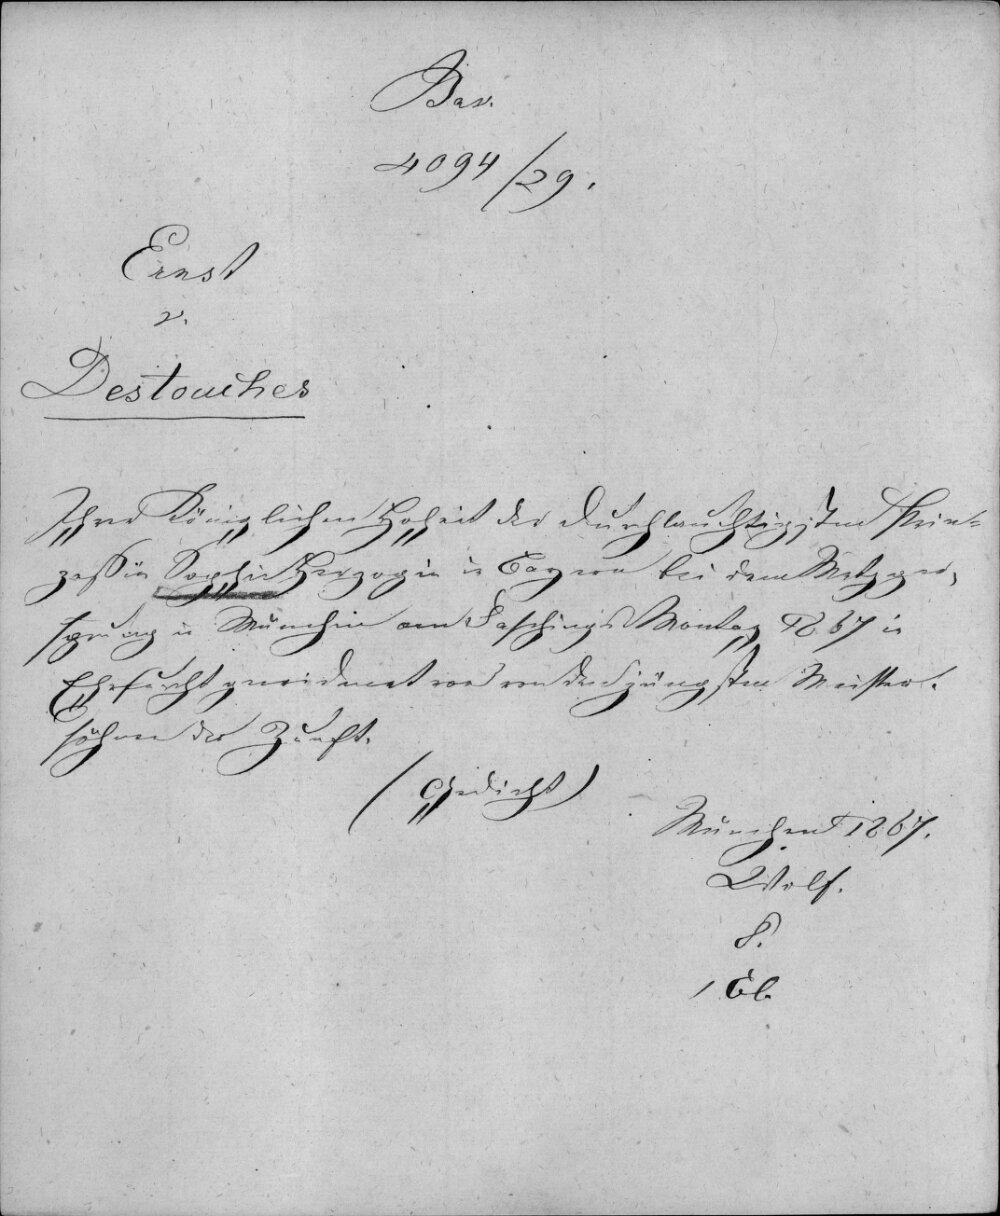 Bav.
4094/29.
Ernst
v.
Destouches
Ihrer Königlichen Hoheit der durchlauchtigsten Prin-
zessin Sophie Herzogin in Bayern bei dem Metzger-
sprung in München am Faschings Montag 1867 in
Ehrfurcht gewidmet von den jüngsten Meister-
söhnen der Zunft.
(Gedicht)
München 1867.
Wolf.
8.
1 Bl.